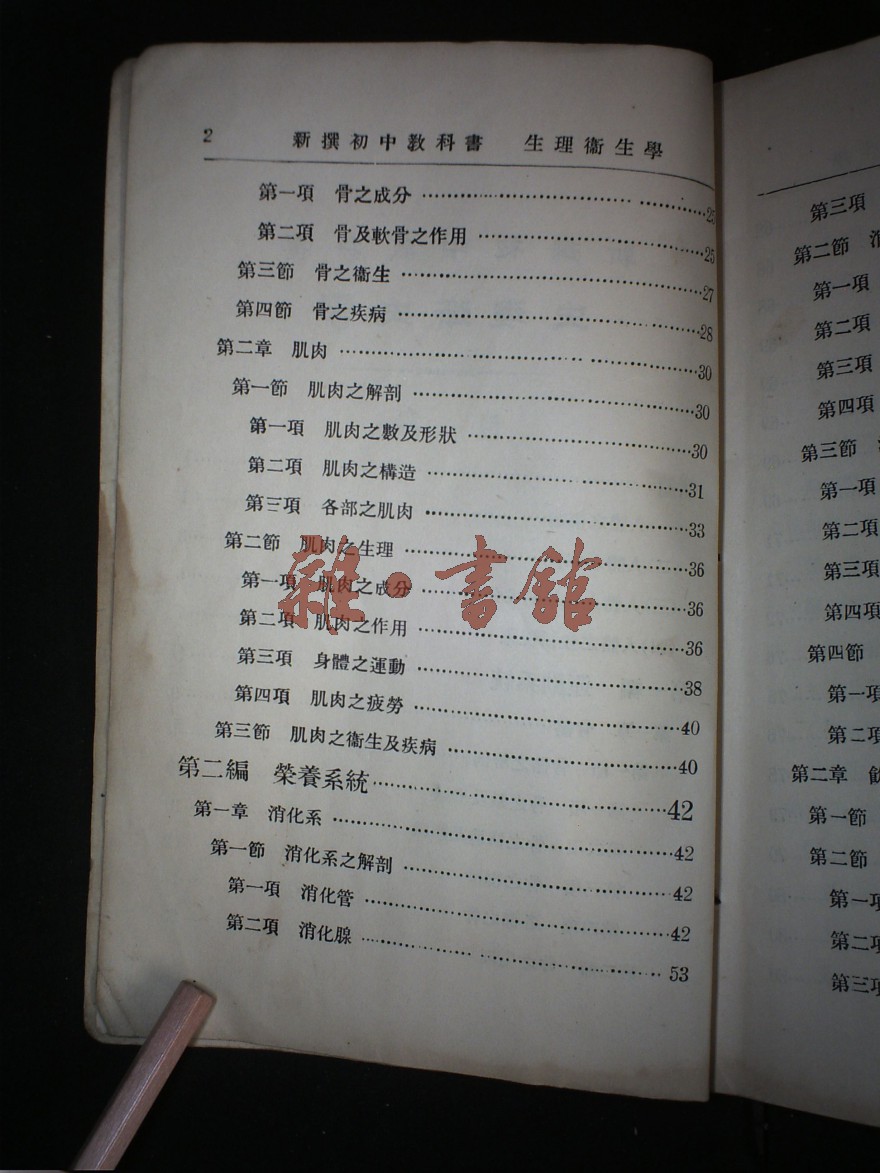 2 新撰初中教科書 生理衞生學
第一項 骨之成分 25
第二項 骨及軟骨之作用 25
第三節 骨之衞生 27
第四節 骨之疾病 28
第二章 肌肉 30
第一節 肌肉之解剖 30
第一項 肌肉之數及形狀 30
第二項 肌肉之構造 31
第三項 各部之肌肉 33
第二節 肌肉之生理 36
第一項 肌肉之成分 36
第二項 肌肉之作用 36
第三項 身體之運動 38
第四項 肌肉之疲勞 40
第三節 肌肉之衞生及疾病 40
第二編 榮養系統 42
第一章 消化系 42
第一節 消化系之解剖 42
第一項 消化管 42
第二項 消化腺 53
雜·書館
第三項
第二節
第一項
第二項
第三項
第四項
第三節
第一項
第二項
第三項
第四項
第四節
第一項
第二項
第二章
第一節
第二節
第一項
第二項
第三項